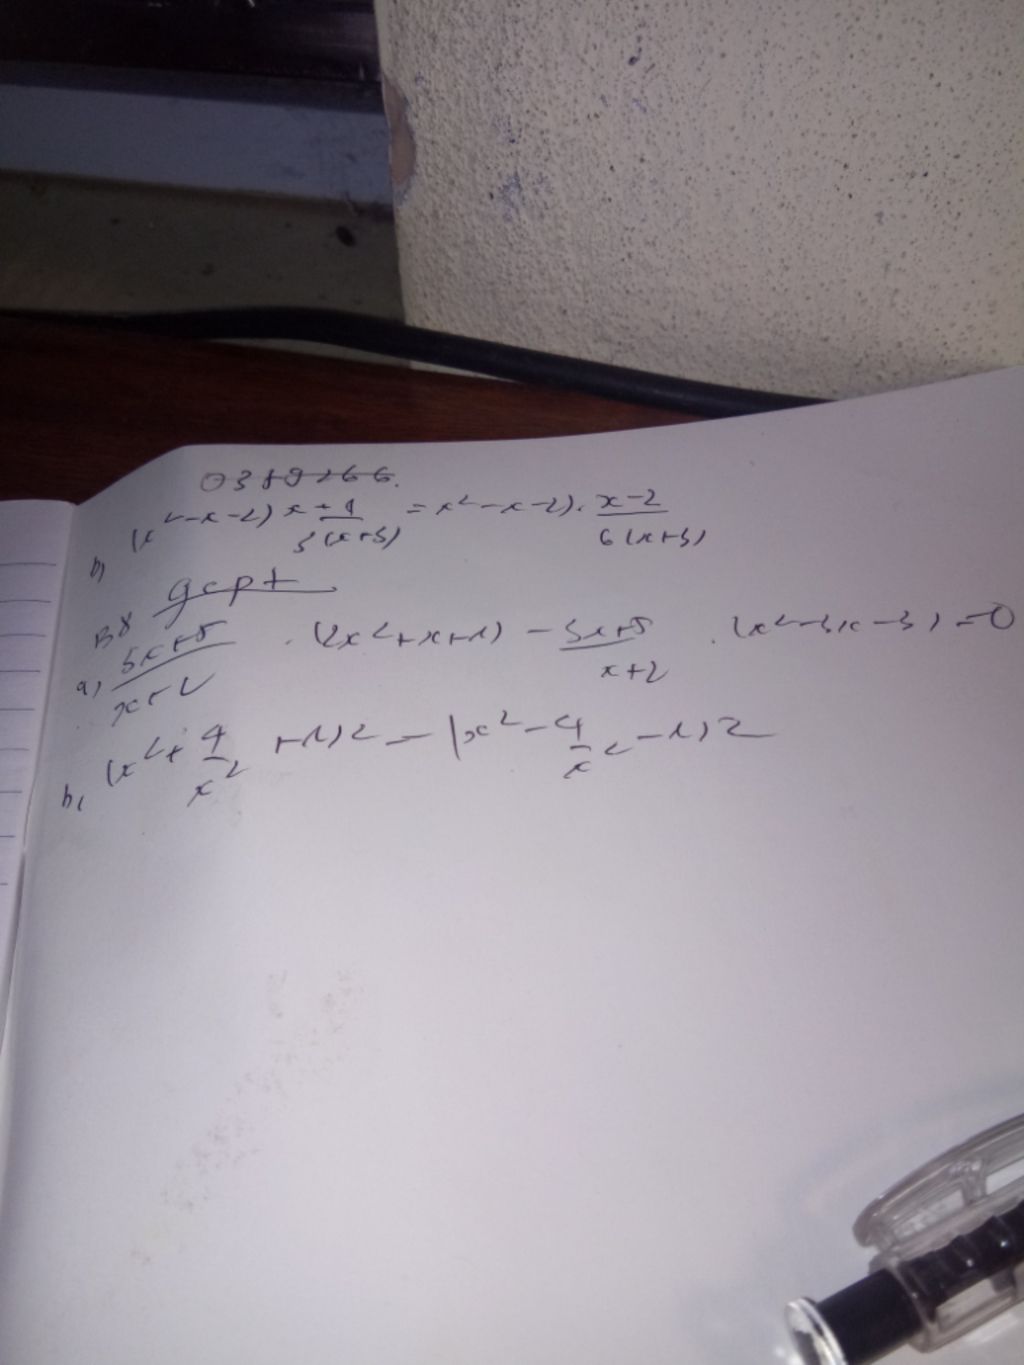 b, (x²-x-2) x+1/3(x+3) = x²-x-2). x-2/6(x+3)
gcpt
B8
a, 5x+5/x+2 . (2x²+x+1) - 5x+5/x+2 . (x²-3x-3) = 0
b, (x²+4/x²+1)2 = (x²-4/x²-1)2